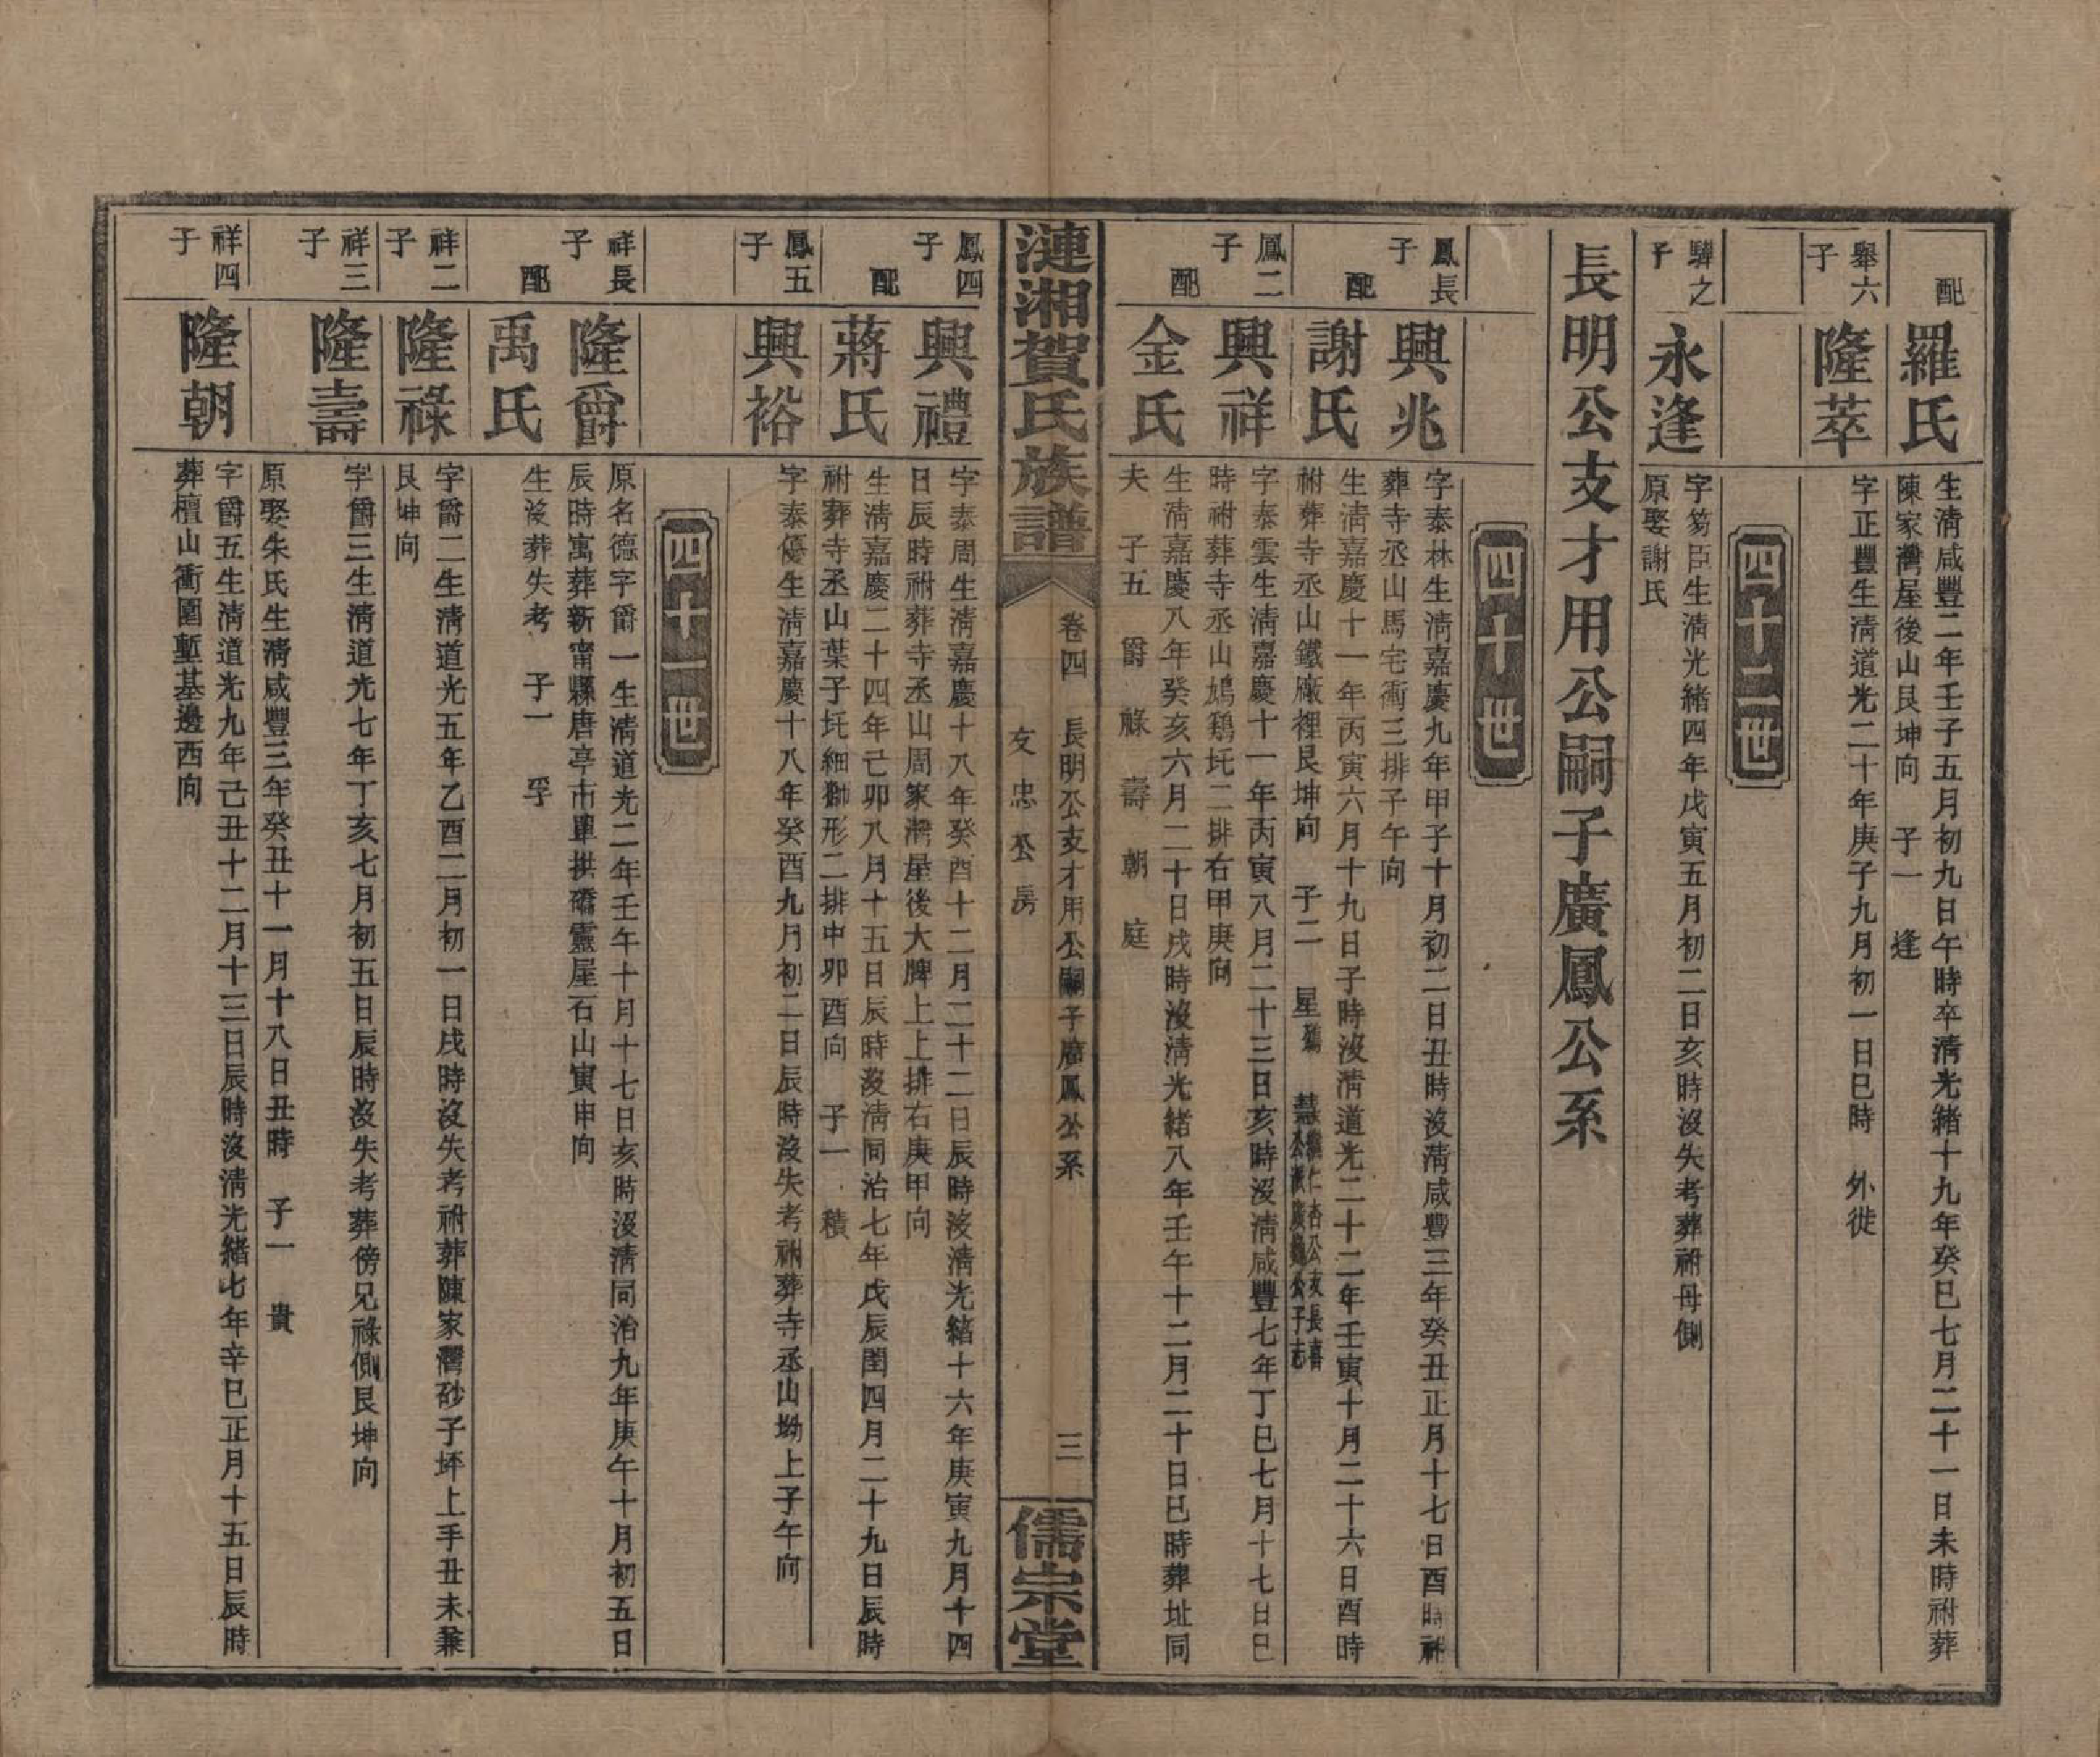 配
羅氏
生清咸豐二年壬子五月初九日午時卒清光緒十九年癸巳七月二十一日未時祔葬
陳家灣屋後山艮坤向 子一 逢
舉六
子
隆萃
字正豐生清道光二十年庚子九月初一日巳時 外徙
四十二世
驊之
子
永逢
字笏臣生清光緒四年戊寅五月初二日亥時沒失考葬祔母側
原娶謝氏
長明公支才用公嗣子廣鳳公系
四十世
鳳長
子
興兆
字泰林生清嘉慶九年甲子十月初二日丑時沒清咸豐三年癸丑正月十七日酉時祔
葬寺丞山馬宅衝三排子午向
配
謝氏
生清嘉慶十一年丙寅六月十九日子時沒清道光二十二年壬寅十月二十六日酉時
祔葬寺丞山鐵廠裡艮坤向 子二 星 慧
鳳二
子
興祥
字泰雲生清嘉慶十一年丙寅八月二十三日亥時沒清咸豐七年丁巳七月十七日巳
時祔葬寺丞山鳩鷄坃二排右甲庚向
配
金氏
生清嘉慶八年癸亥六月二十日戌時沒清光緒八年壬午十二月二十日巳時葬址同
夫 子五 爵 祿 壽 朝 庭
漣湘賀氏族譜
卷四 長明公支才用公嗣子廣鳳公系 三
文忠公房
儒宗堂
鳳四
子
興禮
字泰周生清嘉慶十八年癸酉十二月二十二日辰時沒清光緒十六年庚寅九月十四
日辰時祔葬寺丞山周家灣屋後大脾上上排右庚甲向
配
蔣氏
生清嘉慶二十四年己卯八月十五日辰時沒清同治七年戊辰閏四月二十九日辰時
祔葬寺丞山葉子坃細獅形二排中卯酉向 子一 積
鳳五
子
興裕
字泰優生清嘉慶十八年癸酉九月初二日辰時沒失考祔葬寺丞山坳上子午向
四十一世
祥長
子
隆爵
原名德字爵一生清道光二年壬午十月十七日亥時沒清同治九年庚午十月初五日
辰時寓葬新甯縣唐亭市單拱礄靈屋石山寅申向
配
禹氏
生沒葬失考 子一 孚
祥二
子
隆祿
字爵二生清道光五年乙酉二月初一日戌時沒失考祔葬陳家灣砂子坪上手丑未兼
艮坤向
祥三
子
隆壽
字爵三生清道光七年丁亥七月初五日辰時沒失考葬傍兄祿側艮坤向
原娶朱氏生清咸豐三年癸丑十一月十八日丑時 子一 貴
祥四
子
隆朝
字爵五生清道光九年己丑十二月十三日辰時沒清光緒七年辛巳正月十五日辰時
葬檀山衝圍塹基邊西向